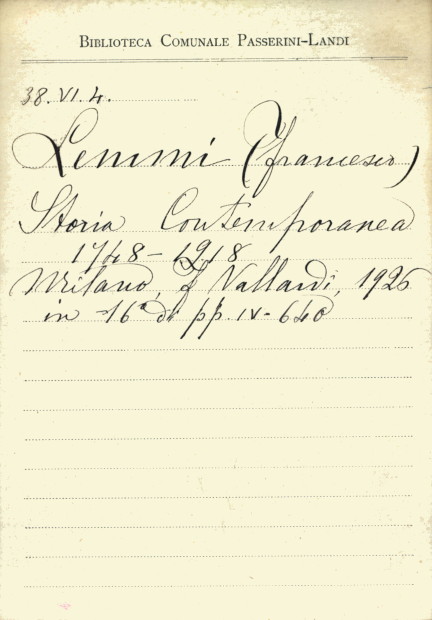 BIBLIOTECA COMUNALE PASSERINI-LANDI
38.VI.4.
Lemmi (Francesco)
Storia Contemporanea
1748-1918
Milano, F Vallardi, 1926
in 16° di pp. IV-640